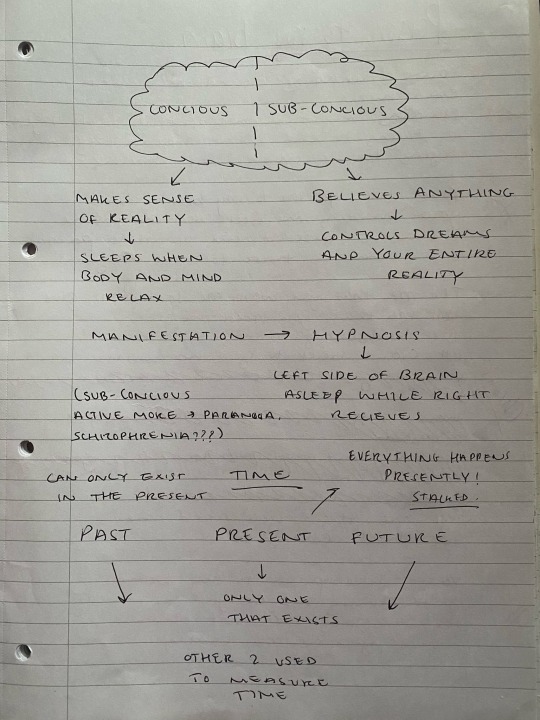 CONCIOUS | SUB-CONCIOUS
MAKES SENSE
OF REALITY
↓
SLEEPS WHEN
BODY AND MIND
RELAX
BELIEVES ANYTHING
↓
CONTROLS DREAMS
AND YOUR ENTIRE
REALITY
MANIFESTATION → HYPNOSIS
↓
LEFT SIDE OF BRAIN
ASLEEP WHILE RIGHT
RECIEVES
(SUB-CONCIOUS
ACTIVE MORE → PARANOIA,
SCHIZOPHRENIA???)
CAN ONLY EXIST
IN THE PRESENT
TIME
EVERYTHING HAPPENS
PRESENTLY!
STACKED.
PAST PRESENT FUTURE
↓
ONLY ONE
THAT EXISTS
OTHER 2 USED
TO MEASURE
TIME